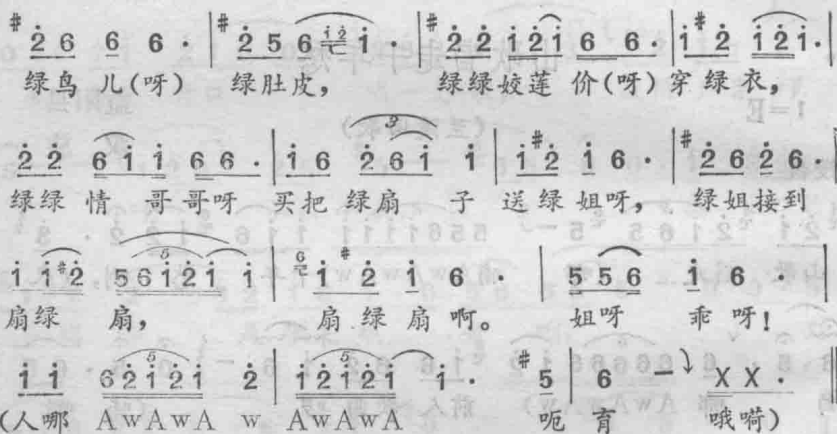 #2̇ 6 6 6 · | #2̇ 5 6 i̇2̇ i · | #2̇ 2̇ i 2̇ i 6 6 · | i #2̇ i 2̇ i ·
绿鸟 儿(呀) 绿肚皮, 绿绿姣莲 价(呀) 穿绿衣,
2̇ 2̇ 6 i i 6 6 · | i 6 2̇ 6 i i | i #2̇ i 6 · | #2̇ 6 2̇ 6 ·
绿绿 情 哥哥呀 买把 绿扇 子 送绿 姐呀, 绿姐接到
i i #2̇ 5 6 i 2̇ i i | 6 i #2̇ i 6 · | 5 5 6 i 6 · |
扇绿 扇, 扇绿 扇啊。 姐呀 乖呀!
i i 6 2̇ i 2̇ i 2̇ | i 2̇ i 2̇ i i · #5 | 6 - X X ·
(人哪 AwAwA w AwAwA 呃 育 哦嗬)